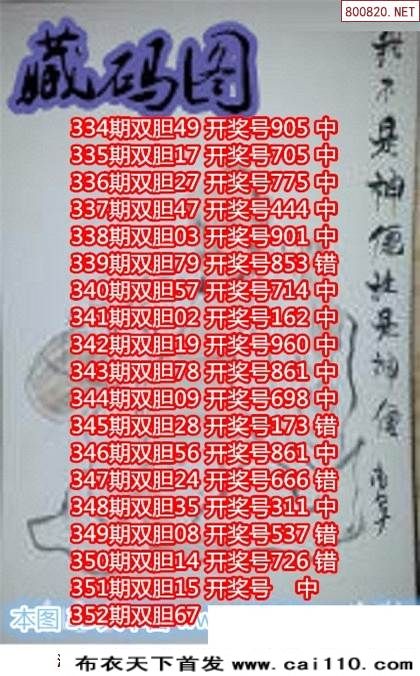 800820.NET
藏码图
我不是神便胜是神仙
334期双胆49 开奖号905 中
335期双胆17 开奖号705 中
336期双胆27 开奖号775 中
337期双胆47 开奖号444 中
338期双胆03 开奖号901 中
339期双胆79 开奖号853 错
340期双胆57 开奖号714 中
341期双胆02 开奖号162 中
342期双胆19 开奖号960 中
343期双胆78 开奖号861 中
344期双胆09 开奖号698 中
345期双胆28 开奖号173 错
346期双胆56 开奖号861 中
347期双胆24 开奖号666 错
348期双胆35 开奖号311 中
349期双胆08 开奖号537 错
350期双胆14 开奖号726 错
351期双胆15 开奖号 中
352期双胆67
本图
布衣天下首发 www.cai110.com